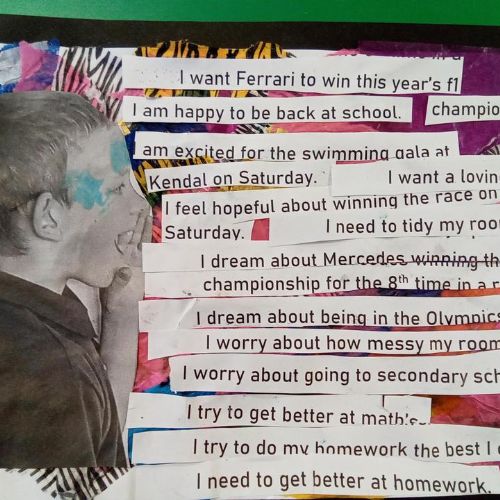 I want Ferrari to win this year's f1
I am happy to be back at school. champio
am excited for the swimming gala at
Kendal on Saturday. I want a lovin
I feel hopeful about winning the race on
Saturday. I need to tidy my roo
I dream about Mercedes winning th
championship for the 8th time in a r
I dream about being in the Olympics
I worry about how messy my room
I worry about going to secondary sch
I try to get better at maths.
I try to do my homework the best I c
I need to get better at homework.